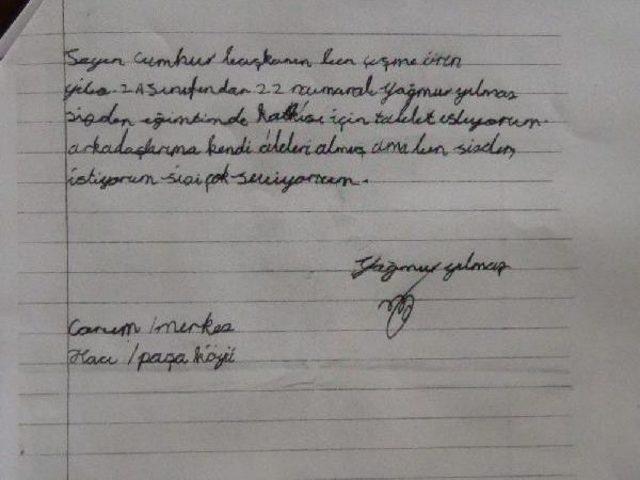 Sayın cumhur başkanım ben çeşme ören
yibo 2A sınıfından 22 numaralı Yağmur yılmaz
sizden eğimtimde katkısı için tablet istiyorum.
arkadaşlarıma kendi aileleri almış ama ben sizden
istiyorum sizi çok seviyorum.
Yağmur yılmaz
Çorum / merkez
Hacı / paşa köyü